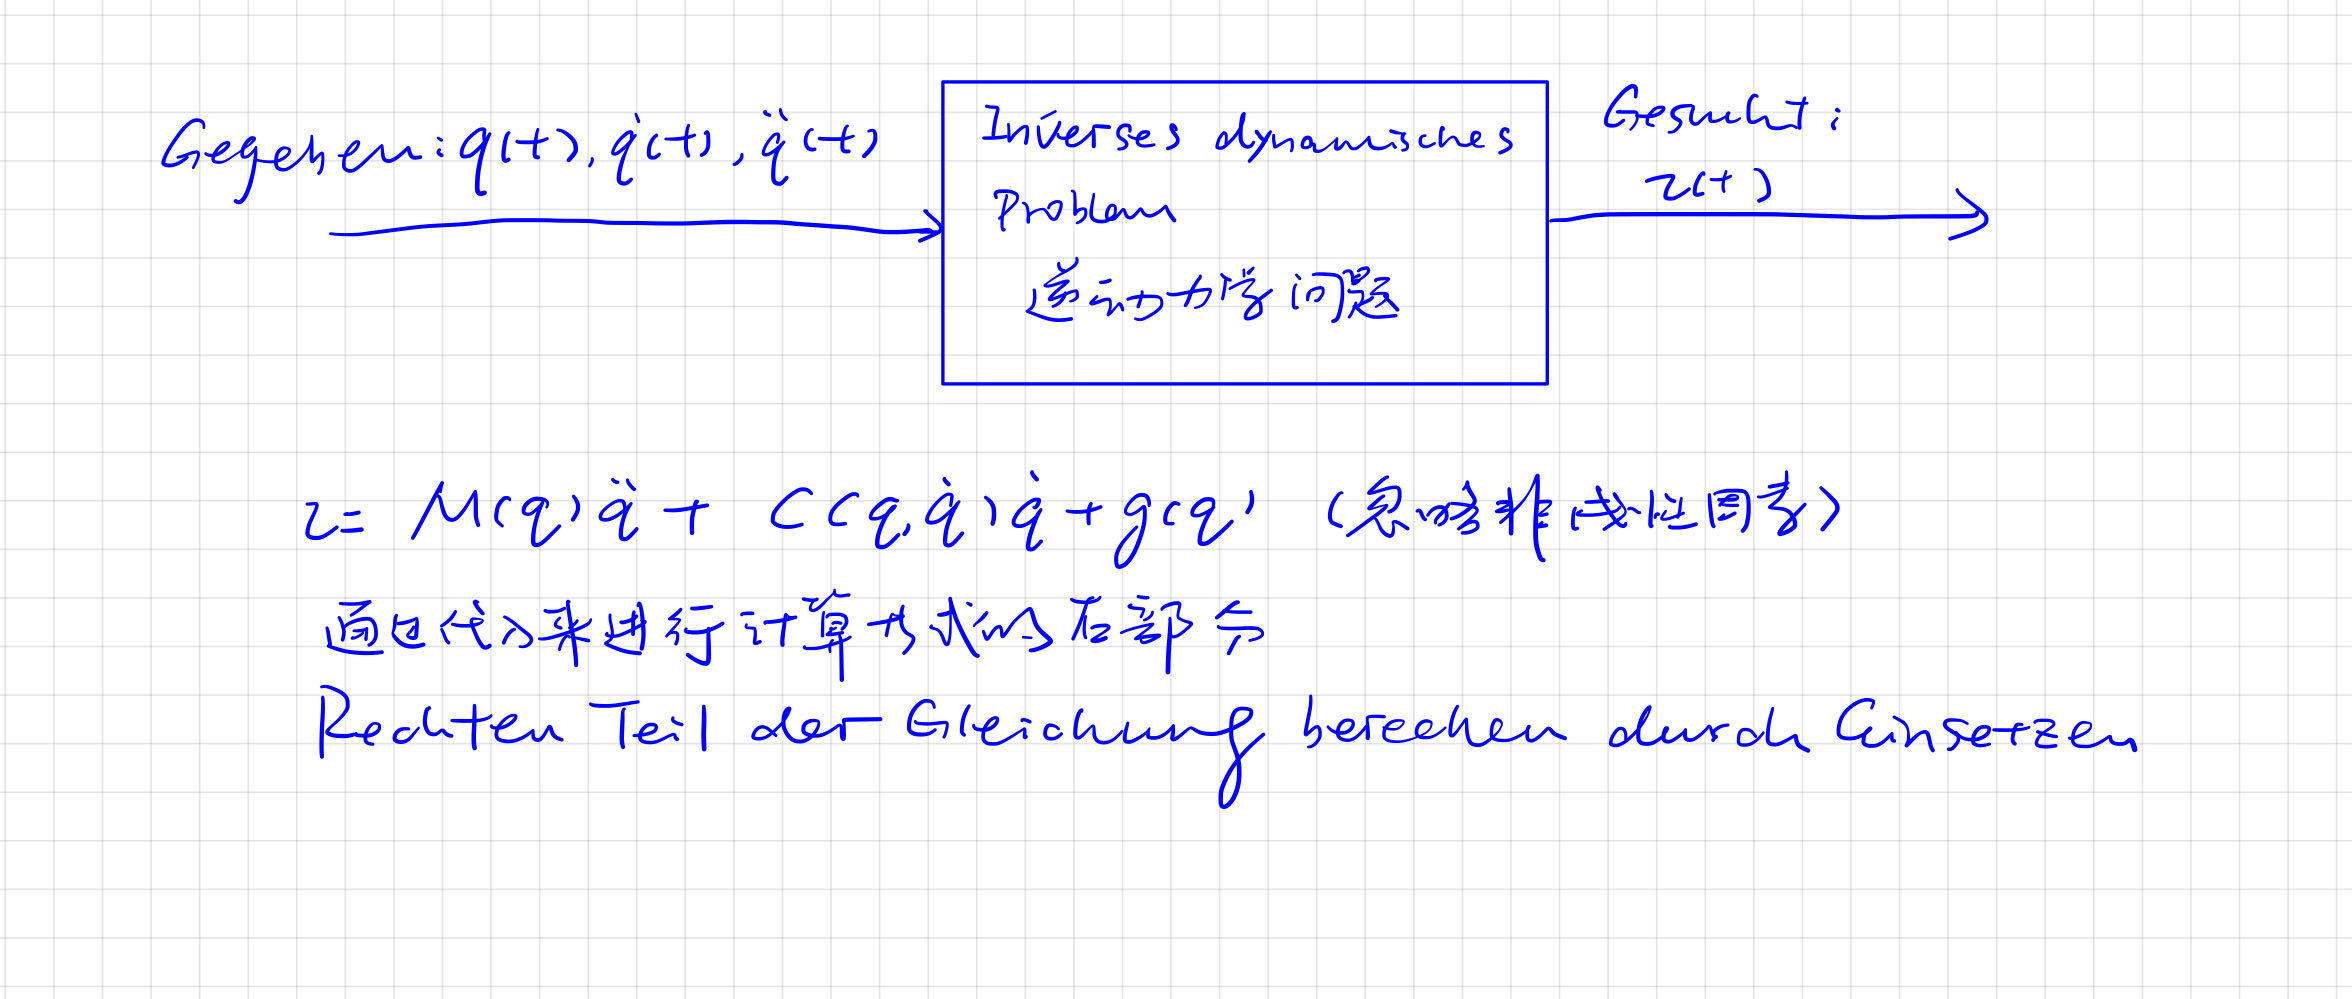 Gegeben: q(t), q̇(t), q̈(t)
Inverses dynamisches
Problem
逆动力学问题
Gesucht:
τ(t)
τ = M(q)q̈ + C(q,q̇)q̇ + g(q) (忽略非线性因素)
通过代入来进行计算方式的右部分
Rechten Teil der Gleichung berechen durch Einsetzen